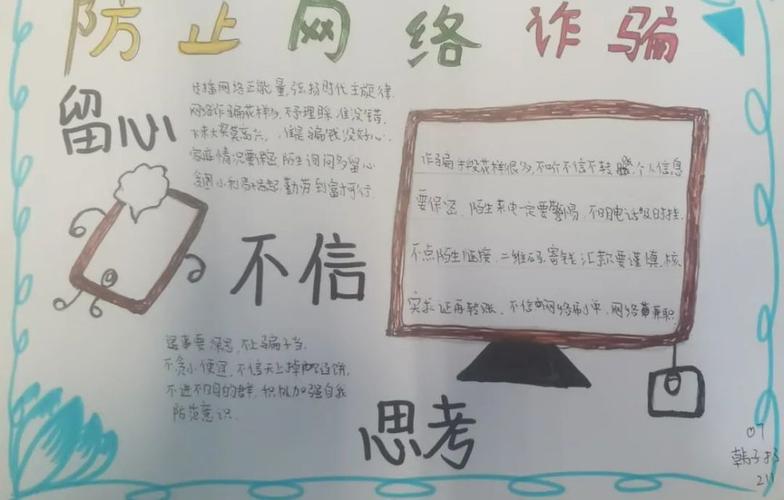 防止网络诈骗
留心
传播网络正能量,弘扬时代主旋律,
网络诈骗花样多,不予理睬准没错,
下来大奖莫高兴,准是骗钱没好心,
家庭情况要保密,陌生询问多留心
贪图小利
勤劳
致富才可行
不信
诈骗手段花样很多,不听不信不转账,个人信息
要保密,陌生来电一定要警惕,不明电话及时挂,
不点陌生链接,二维码,寄钱汇款要谨慎,核
实求证再转账,不信网络刷单,网络兼职
遇事要深思,不让骗子当,
不贪小便宜,不信天上掉馅饼,
不进不明的群,积极加强自我
防范意识.
思考
07
韩子
21